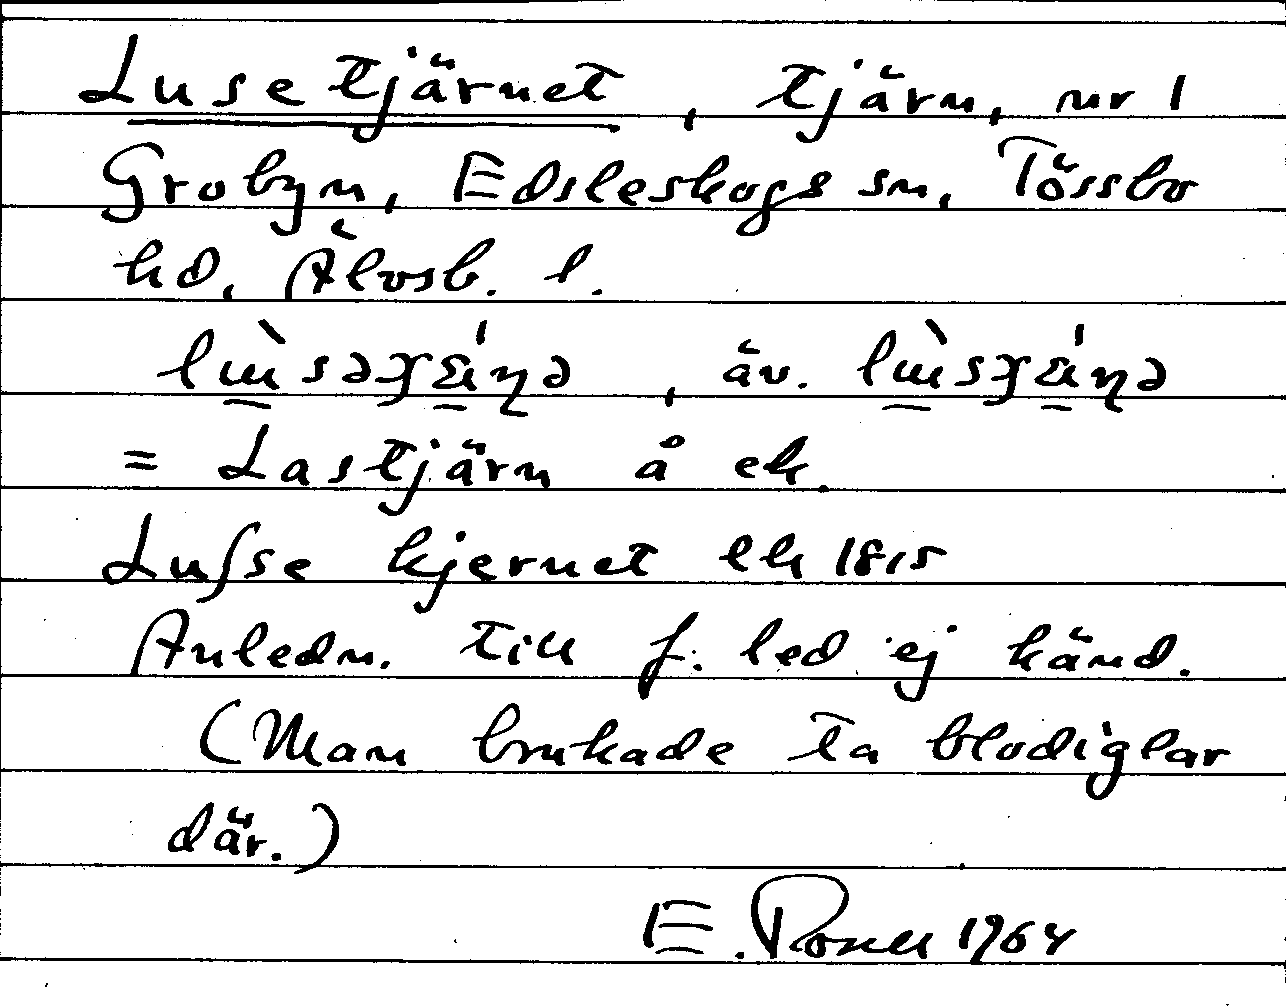 Lusetjärnet, tjärn, nr 1
Grobyn, Edsleskogs sn, Tössbo
hd, Älvsb. l.
, äv.
= Lastjärn å ek.
Luſse kjernet lh 1815
Anledn. till f. led ej känd.
(Man brukade ta blodiglar
där.)
E. 1964